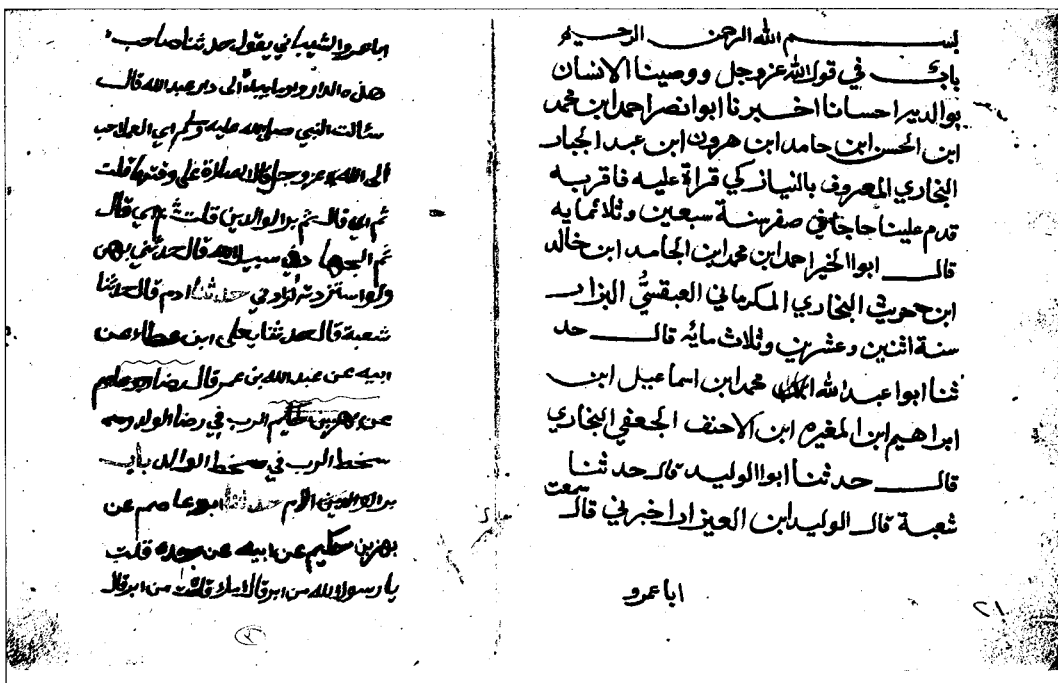 بسم الله الرحمن الرحيم
باب في قول الله عز وجل ووصينا الانسان
بوالديه احسانا اخبرنا ابوا نصر احمد ابن محمد
ابن الحسن ابن حامد ابن هرون ابن عبد الجبار
البخاري المعروف بالنيازكي قراة عليه فاقر به
قدم علينا حاجا في صفر سنة سبعين وثلاثمايه
قال ابوا الخير احمد ابن محمد ابن الجامد ابن خالد
ابن حمويث البخاري المكرماني العبقسيُّ البزار
سنة اثنين وعشرين وثلاث مائه قال حد
ثنا ابوا عبد الله محمد ابن اسماعيل ابن
ابراهيم ابن المغيره ابن الاحنف الجعفي البخاري
قال حدثنا ابوا الوليد قال حدثنا
شعبة قال الوليد ابن العيزار اخبرني قال سمعت
ابا عمرو
٢١
ابا عمرو الشيباني يقول حدثنا صاحب
هذه الدار واوما بيده الى دار عبد الله قال
سئالت النبي صلى الله عليه وسلم اي العمل احب
الى الله عز وجل قال الصلاة على وقتها قلت
ثم اي قال ثم بر الوالدين قلت ثم اي قال
ثم الجهاد في سبيل الله قال حدثني بهن
ولو استزدته لزادني حدثنا ادم قال حدثنا
شعبة قال حدثنا يعلى ابن عطاء عن
ابيه عن عبد الله بن عمر قال رضا
عن بهز بن حكيم الرب في رضا الوالد و
سخط الرب في سخط الوالد باب
بر الوالدين الام حدثنا ابو عاصم عن
بهز بن حكيم عن ابيه عن جده قلت
يا رسول الله من ابر قال امك قلت من ابر قال
٢